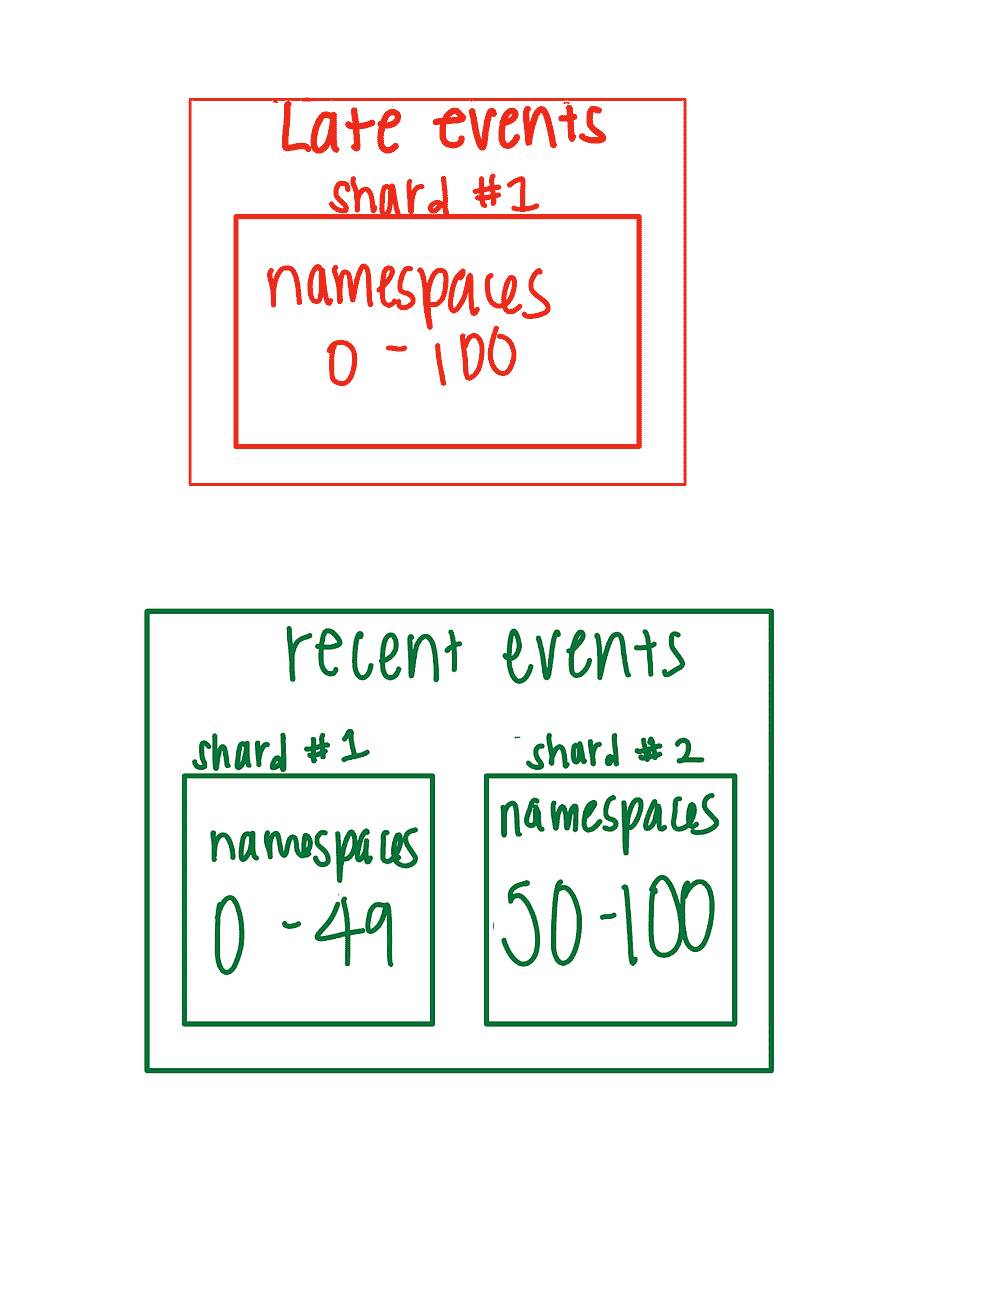 Late events
shard #1
namespaces
0 - 100
recent events
shard #1
namespaces
0 - 49
shard #2
namespaces
50-100